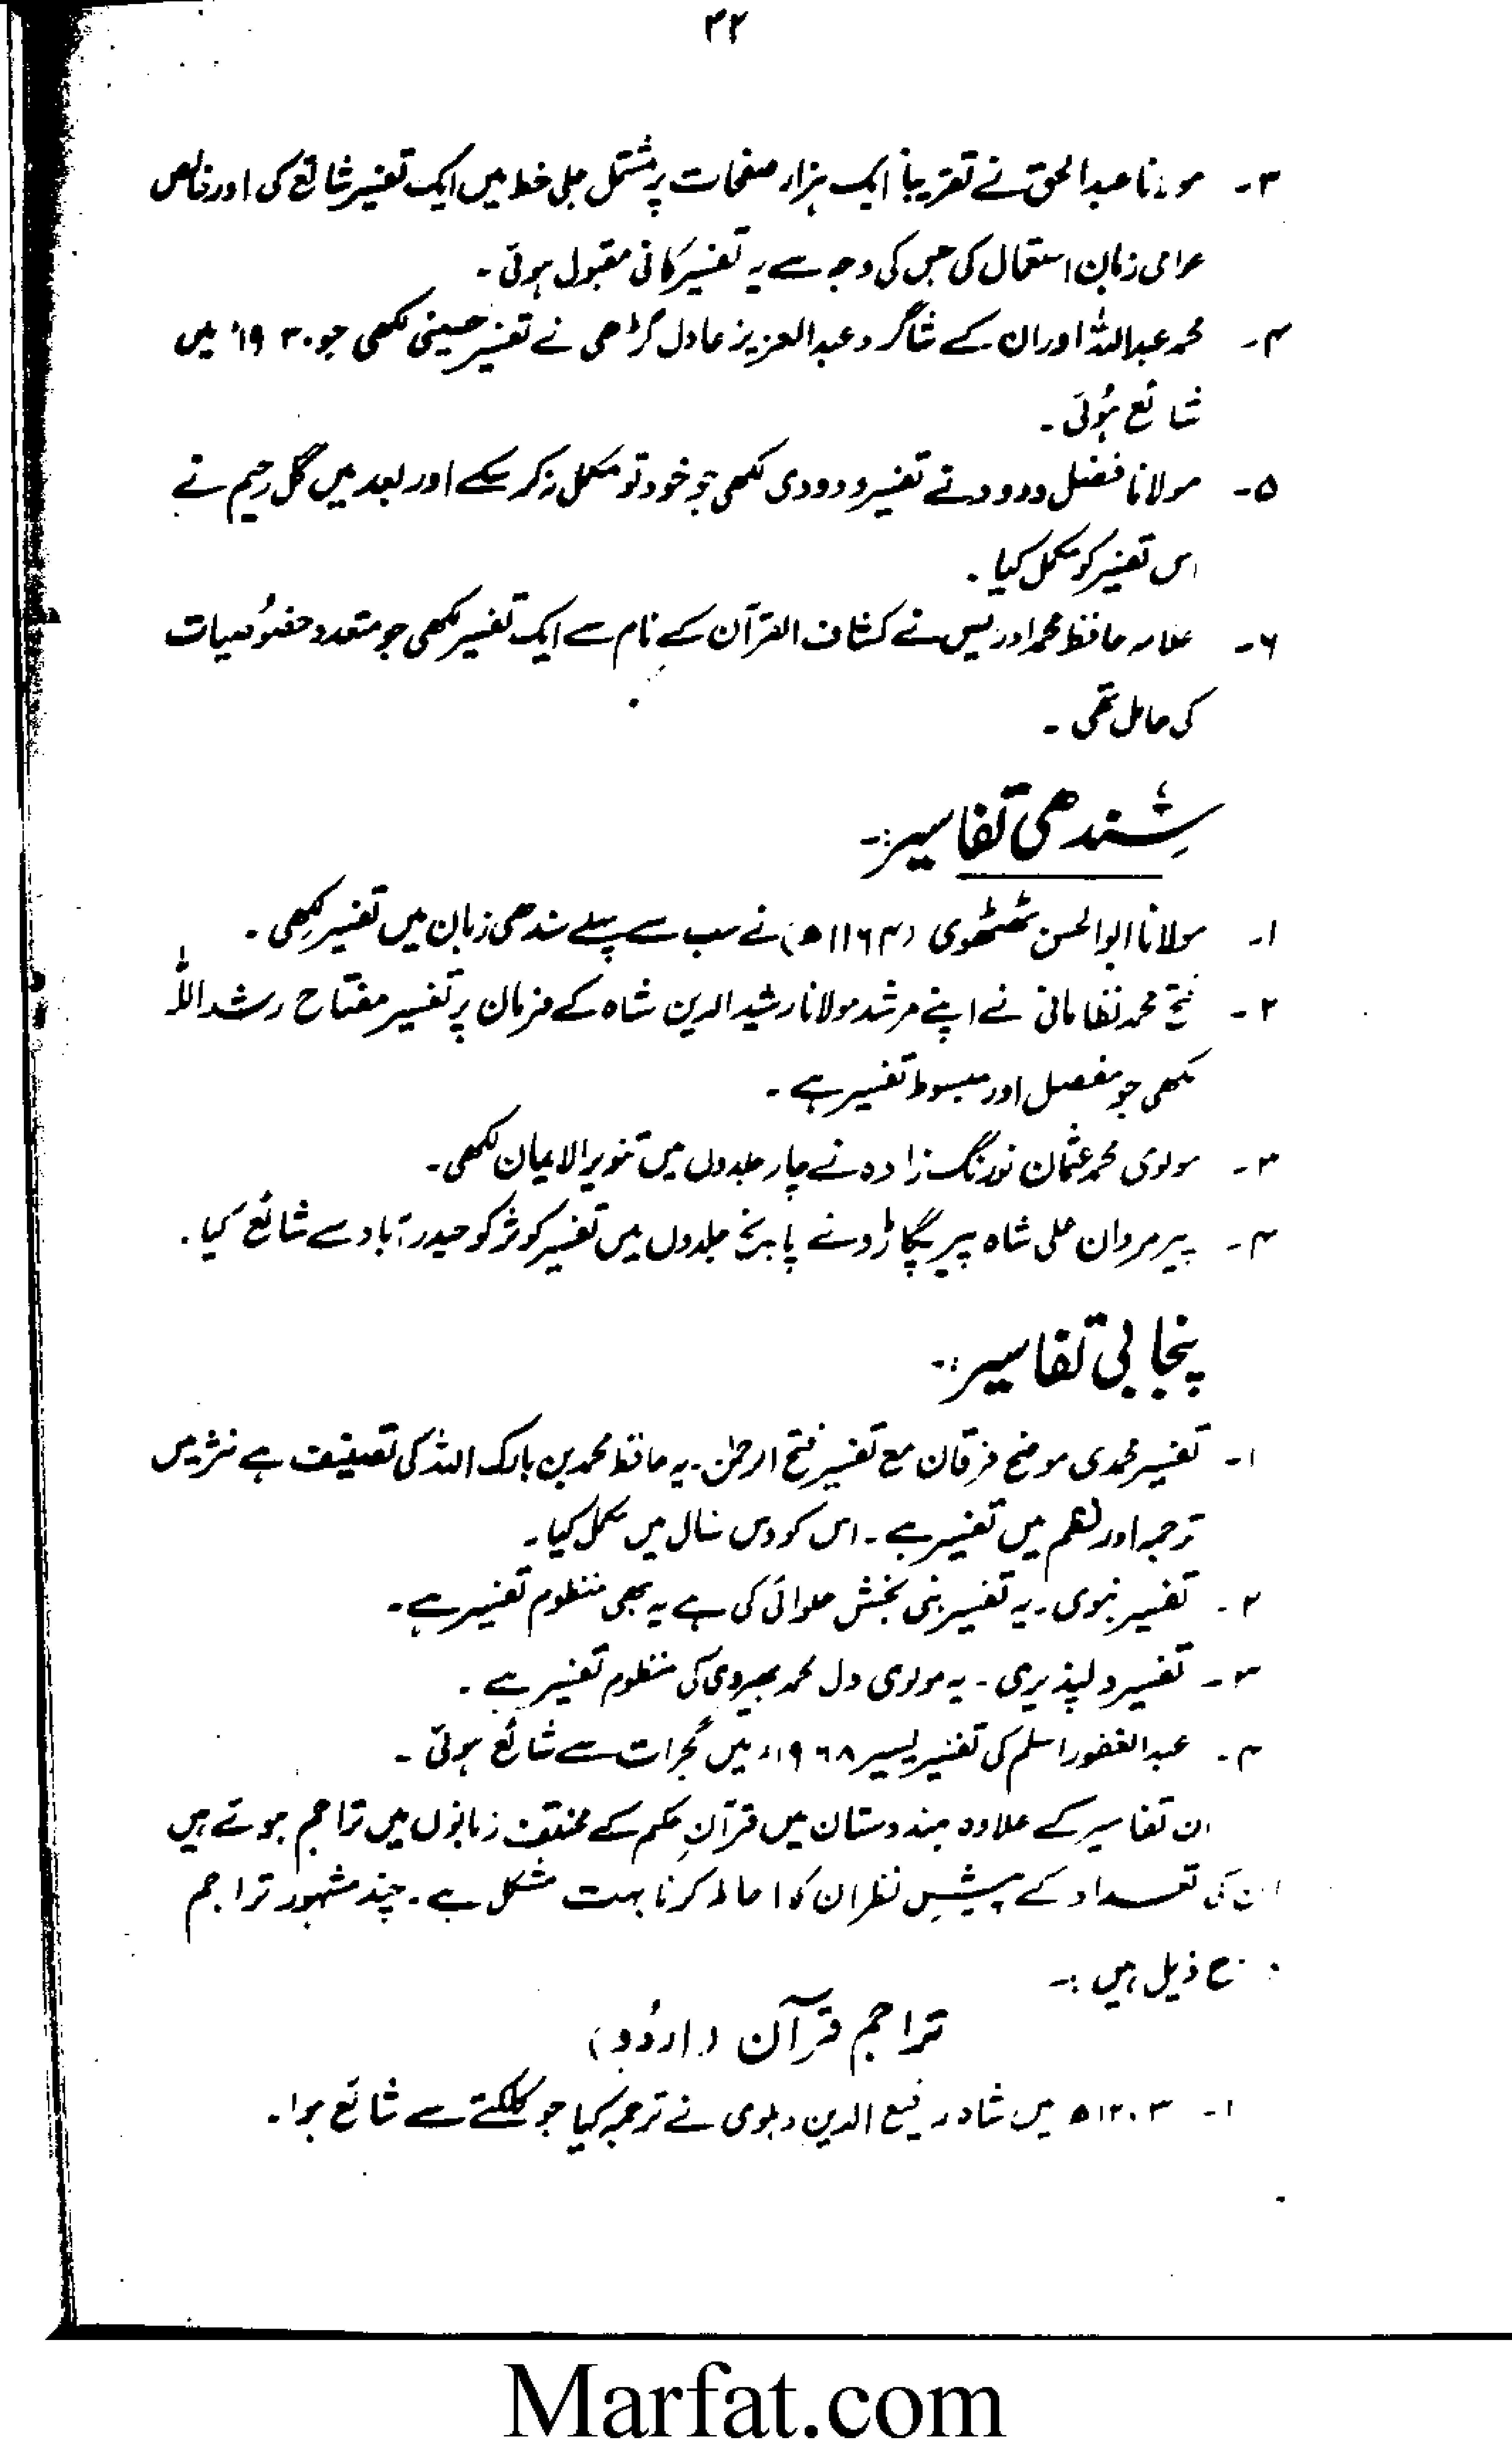 ۳۲
۳۔ مولانا عبدالحق نے تقریباً ایک ہزار صفحات پر مشتمل جلی خط میں ایک تفسیر شائع کی اور خالص
عوامی زبان استعمال کی جس کی وجہ سے یہ تفسیر کافی مقبول ہوئی۔
۴۔ محمد عبداللہ اور ان کے شاگرد عبدالعزیز عادل گڑھی نے تفسیر حسینی لکھی جو ۱۹۳۰ء میں
شائع ہُوئی۔
۵۔ مولانا فضل ودود نے تفسیر ودودی لکھی جو خود تو مکمل نہ کر سکے اور بعد میں گل رحیم نے
اس تفسیر کو مکمل کیا۔
۶۔ علامہ حافظ محمد ادریس نے کشاف القرآن کے نام سے ایک تفسیر لکھی جو متعدد خصُوصیات
کی حامل تھی۔
سِندھی تفاسیر:۔
۱۔ مولانا ابوالحسن ٹھٹھوی (۱۱۶۴ھ) نے سب سے پہلے سندھی زبان میں تفسیر لکھی۔
۲۔ فتح محمد نظامانی نے اپنے مرشد مولانا رشید الدین شاہ کے فرمان پر تفسیر مفتاح رشد اللہ
لکھی جو مفصل اور مبسوط تفسیر ہے۔
۳۔ مولوی محمد عثمان نورنگ زادہ نے چار جلدوں میں تنویر الایمان لکھی۔
۴۔ پیر مردان علی شاہ پیر پگاڑو نے پانچ جلدوں میں تفسیر کوثر کو حیدرآباد سے شائع کیا۔
پنجابی تفاسیر:۔
۱۔ تفسیر محمدی موضح فرقان مع تفسیر فتح الرحمٰن۔ یہ حافظ محمد بن بارک اللہ کی تصنیف ہے نثر میں
ترجمہ اور نظم میں تفسیر ہے۔ اس کو دس سال میں مکمل کیا۔
۲۔ تفسیر نبوی۔ یہ تفسیر نبی بخش حلوائی کی ہے یہ بھی منظوم تفسیر ہے۔
۳۔ تفسیر دلپذیری۔ یہ مولوی دل محمد بھیروی کی منظوم تفسیر ہے۔
۴۔ عبدالغفور اسلم کی تفسیر یسیر ۱۹۶۸ء میں گجرات سے شائع ہوئی۔
ان تفاسیر کے علاوہ ہندوستان میں قرآنِ حکم کے مختلف زبانوں میں تراجم ہوئے ہیں
ان کی تعداد کے پیشِ نظر ان کا احاطہ کرنا بہت مشکل ہے۔ چند مشہور تراجم
ذیل ہیں:۔
تراجم قرآن (اردُو)
۱۔ ۱۲۰۳ھ میں شاہ رفیع الدین دہلوی نے ترجمہ کیا جو کلکتے سے شائع ہوا۔
Marfat.com